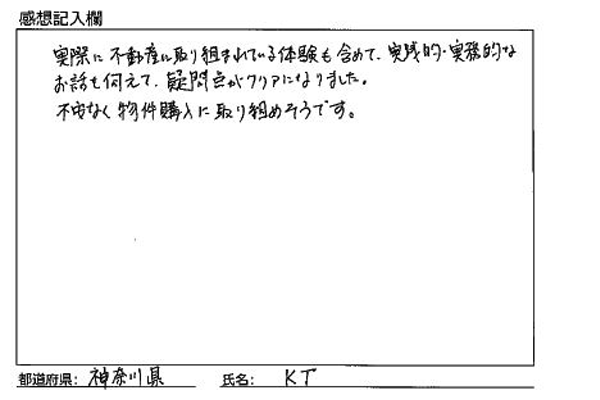 感想記入欄
実際に不動産に取り組まれている体験も含めて、実践的・実務的な
お話を伺えて、疑問点がクリアになりました。
不安なく物件購入に取り組めそうです。
都道府県: 神奈川県 氏名: KT